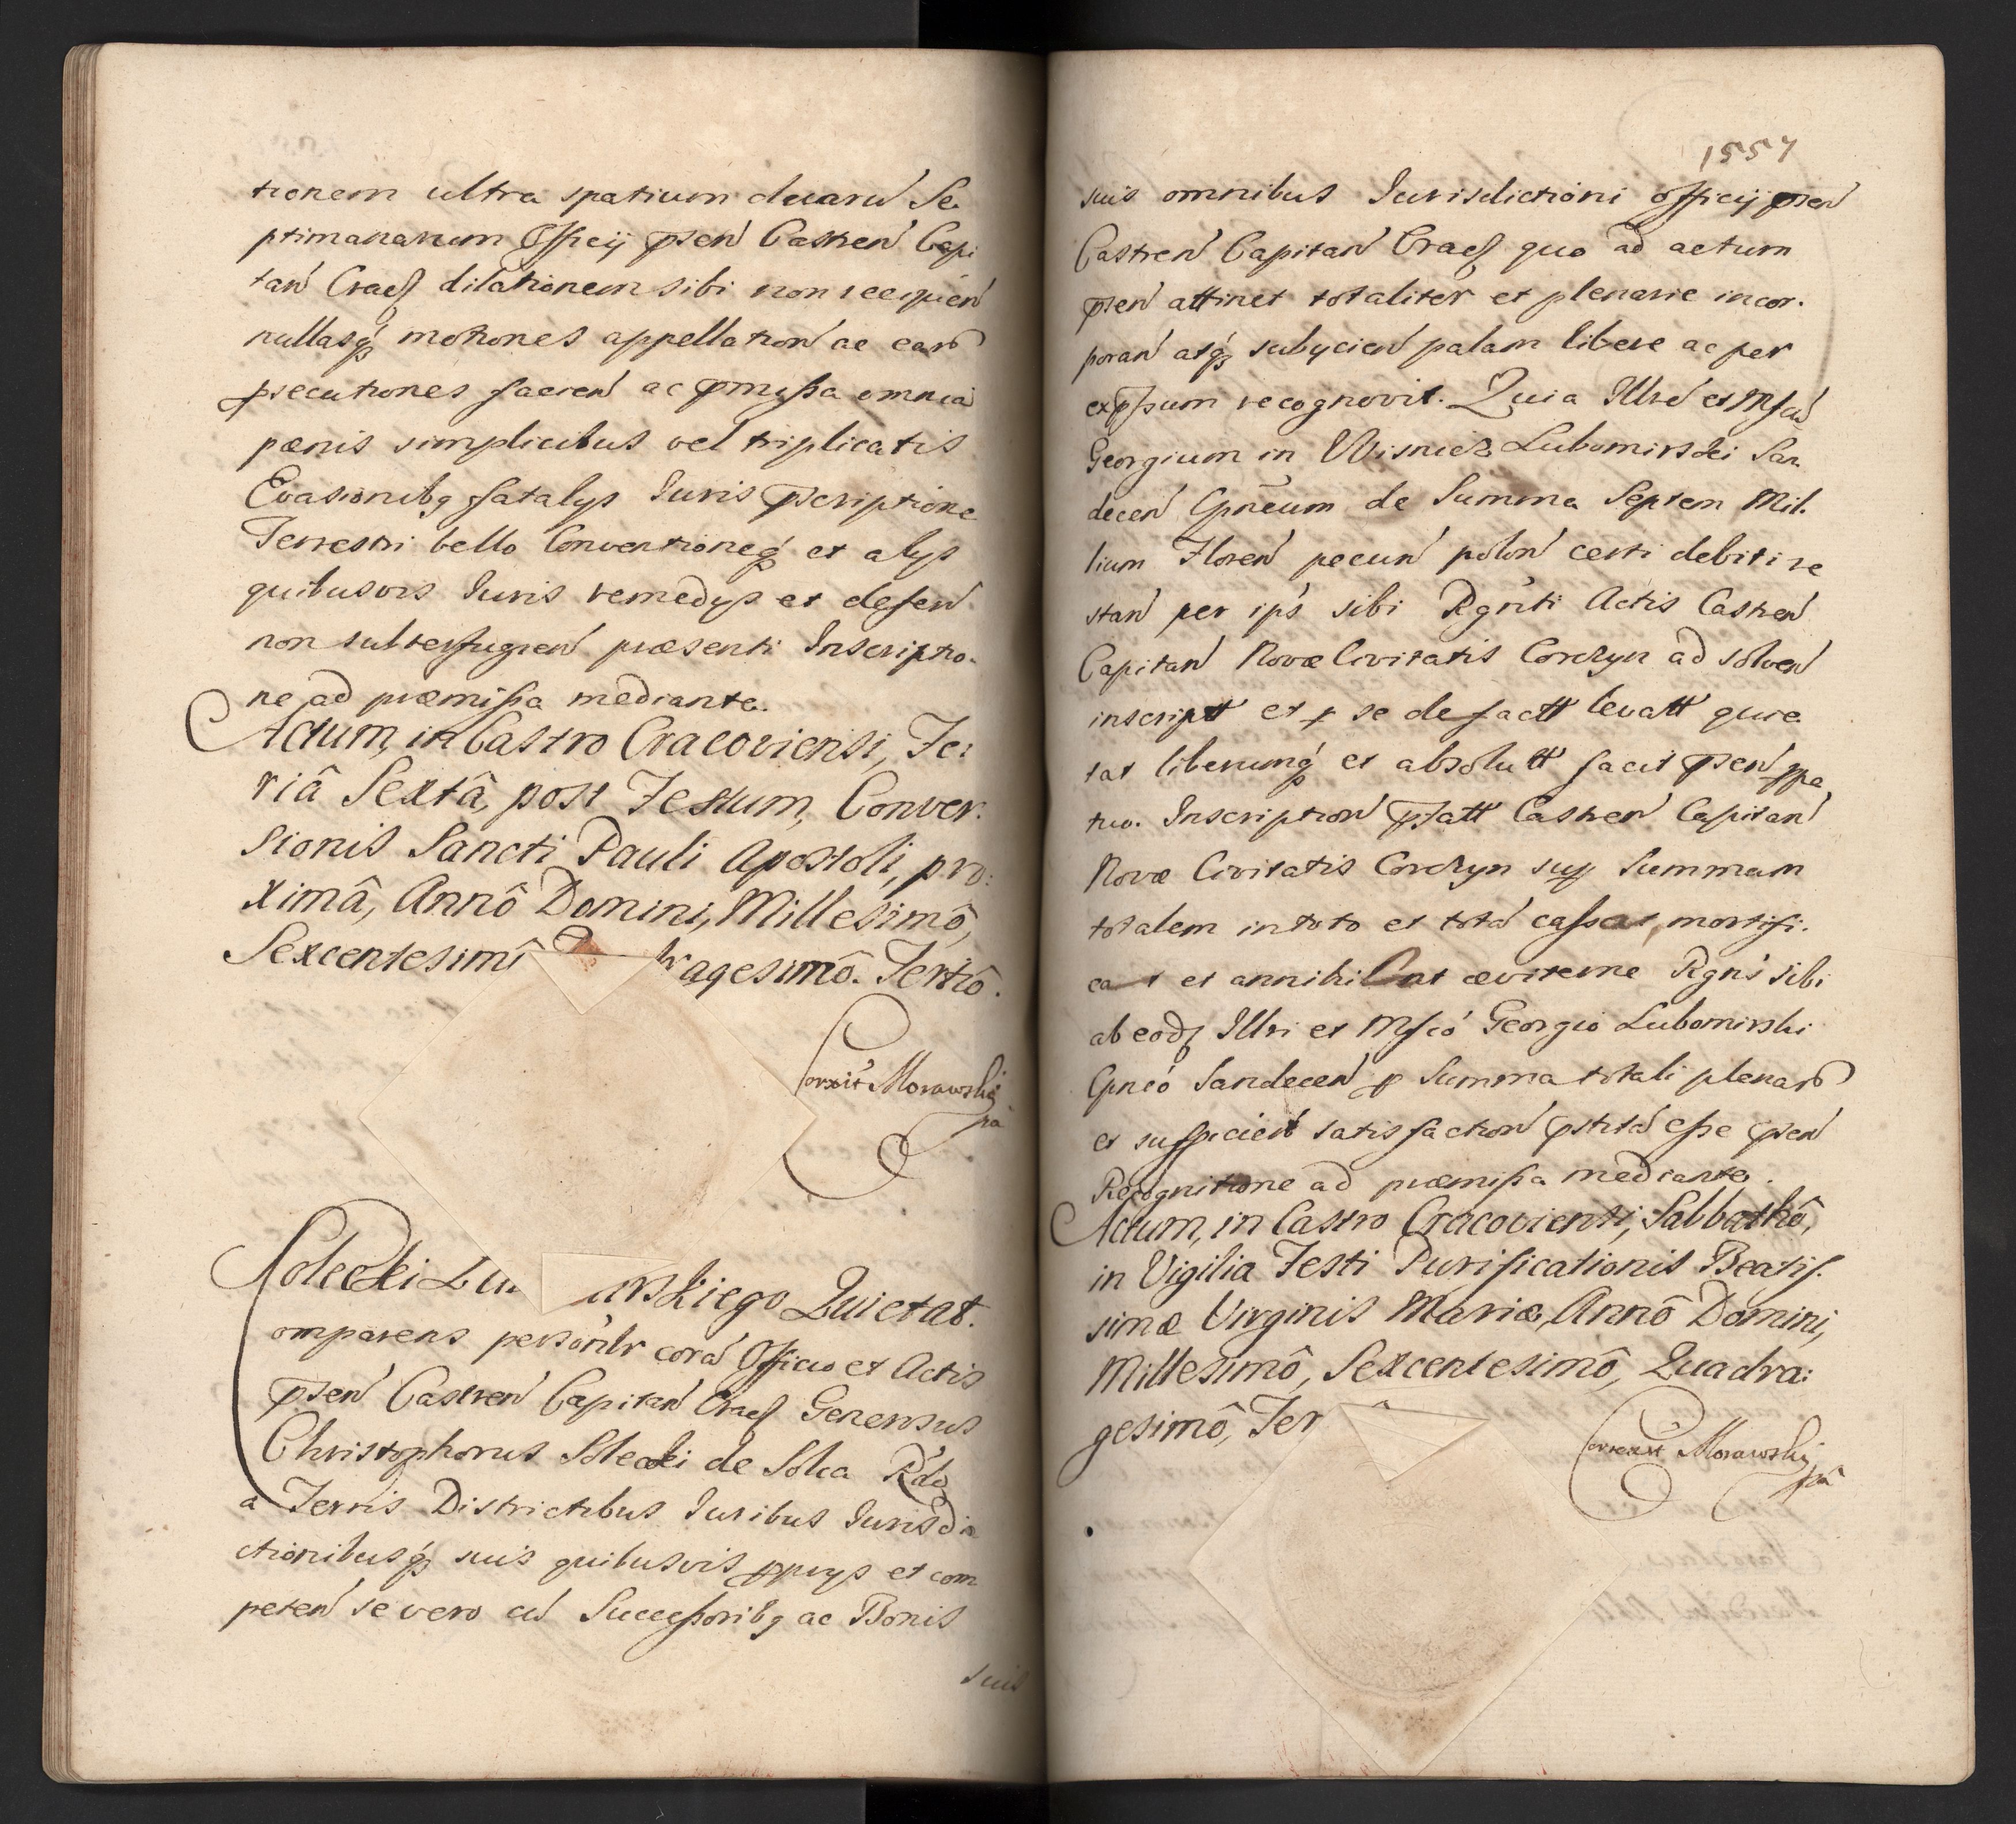 tionem ultra spatium duaru Se
ptimanarum Officij psen Castren Capi
tan Crac dilationem sibi non recipien
nullasq motiones appellation ac earu
psecutiones facien ac pmissa omnia
pœnis simplicibus vel triplicatis
Evasionibq fatalys Iuris pscriptione
Terrestri bello Conventioneq et alys
quibusvis Iuris remedys et defen
non subterfugien præsenti Inscriptio-
ne ad præmissa mediante.
Actum, in Castro Cracoviensi, Fe:
riâ Sextâ, post Festum, Conver:
sionis Sancti Pauli Apostoli, pro:
ximâ, Annô Domini, Millesimô,
Sexcentesimô agesimô. Tertiô.
Correxit Morawski
pa
Solecki Lu irskiego Quietat.
Comparens personlr cora Officio et Actis
psen Castren Capitan Crac Generosus
Christophorus Solecki de Solca Rdo
a Terris Districtibus Iuribus Iurisdi
ctionibusq suis quibusvis pprys et com
peten se vero cu Successoribq ac Bonis
suis
1557
suis omnibus Iurisdictioni officij psen
Castren Capitan Crac quo ad actum
psen attinet totaliter et plenarie incor.
poran atq subycien palam libere ac per
expssum recognovit. Quia Illre et Mfcu
Georgium in Wisnicz Lubomirski San
decen Cpneum de Summa Septem Mil.
lium Floren pecun polon certi debiti re
stan per ips sibi Rgnti Actis Castren
Capitan Novæ Civitatis Corczyn ad solven
inscriptt et p se de factt levatt quie
tat liberumq et absolutt facit psen ppe
tuo. Inscription pfatt Castren Capitan
Novæ Civitatis Corczyn sup Summam
totalem in toto et tota cassat, mortifi.
cat et annihilat æviterne Rgns sibi
ab eod Illri et Mfco Georgio Lubomirski
Cpneo Sandecen p Summa totali plenaru
et sufficien satisfaction pstita esse psen
Recognitione ad præmissa mediante.
Actum, in Castro Cracoviensi, Sabbathô,
in Vigilia Festi Purificationis Beatis.
simæ Virginis Mariæ, Annô Domini,
Millesimô, Sexcentesimô, Quadra:
gesimô, Ter
Correxit Morawski
pa